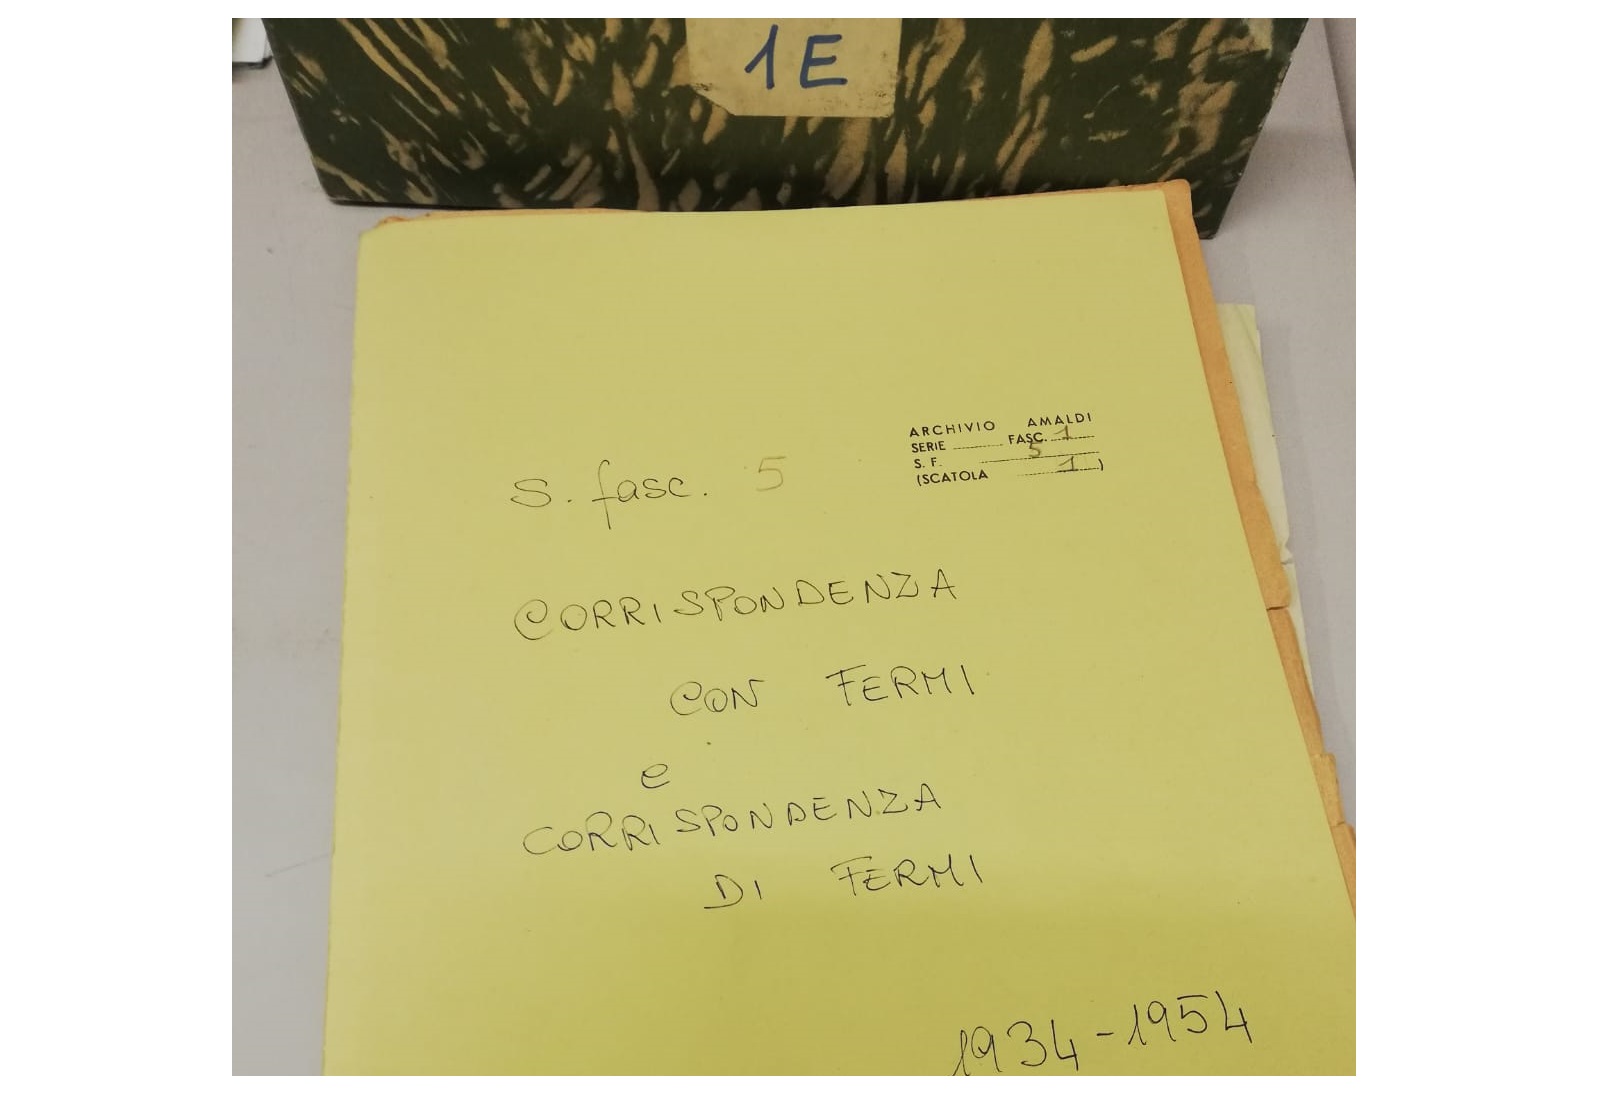 1E
ARCHIVIO AMALDI
SERIE FASC. 1
S. F. 5
(SCATOLA 1)
S. fasc. 5
CORRISPONDENZA
CON FERMI
e
CORRISPONDENZA
DI FERMI
1934-1954